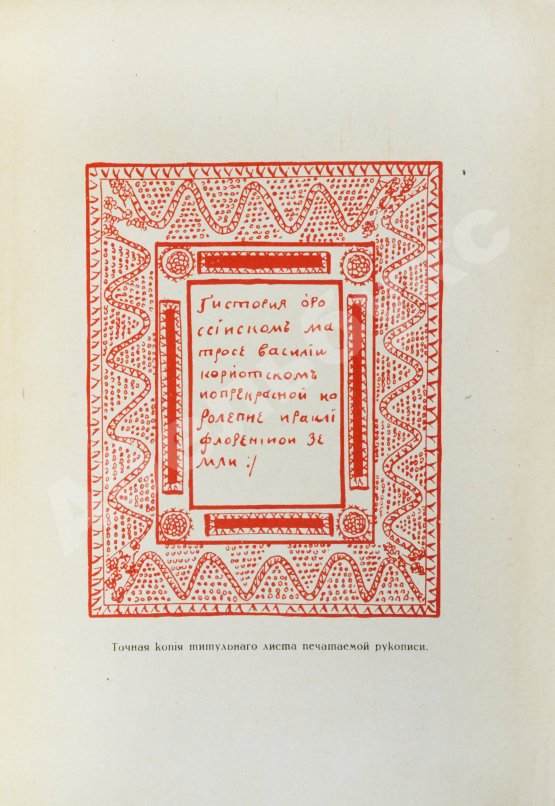 Гистория оро
ссіискомъ ма
тросе василіи
кориотскомъ
иопрекрасной ко
ролевне иракліі
флоренскои зе
мли :/
Точная копія титульнаго листа печатаемой рукописи.